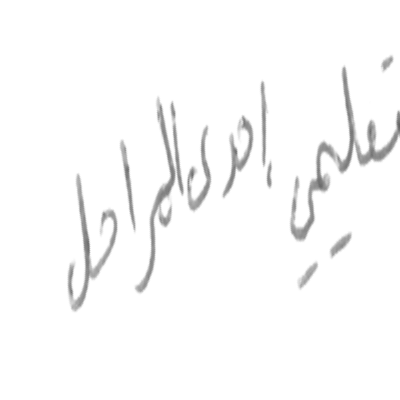 تعليمي إحدى المراحل